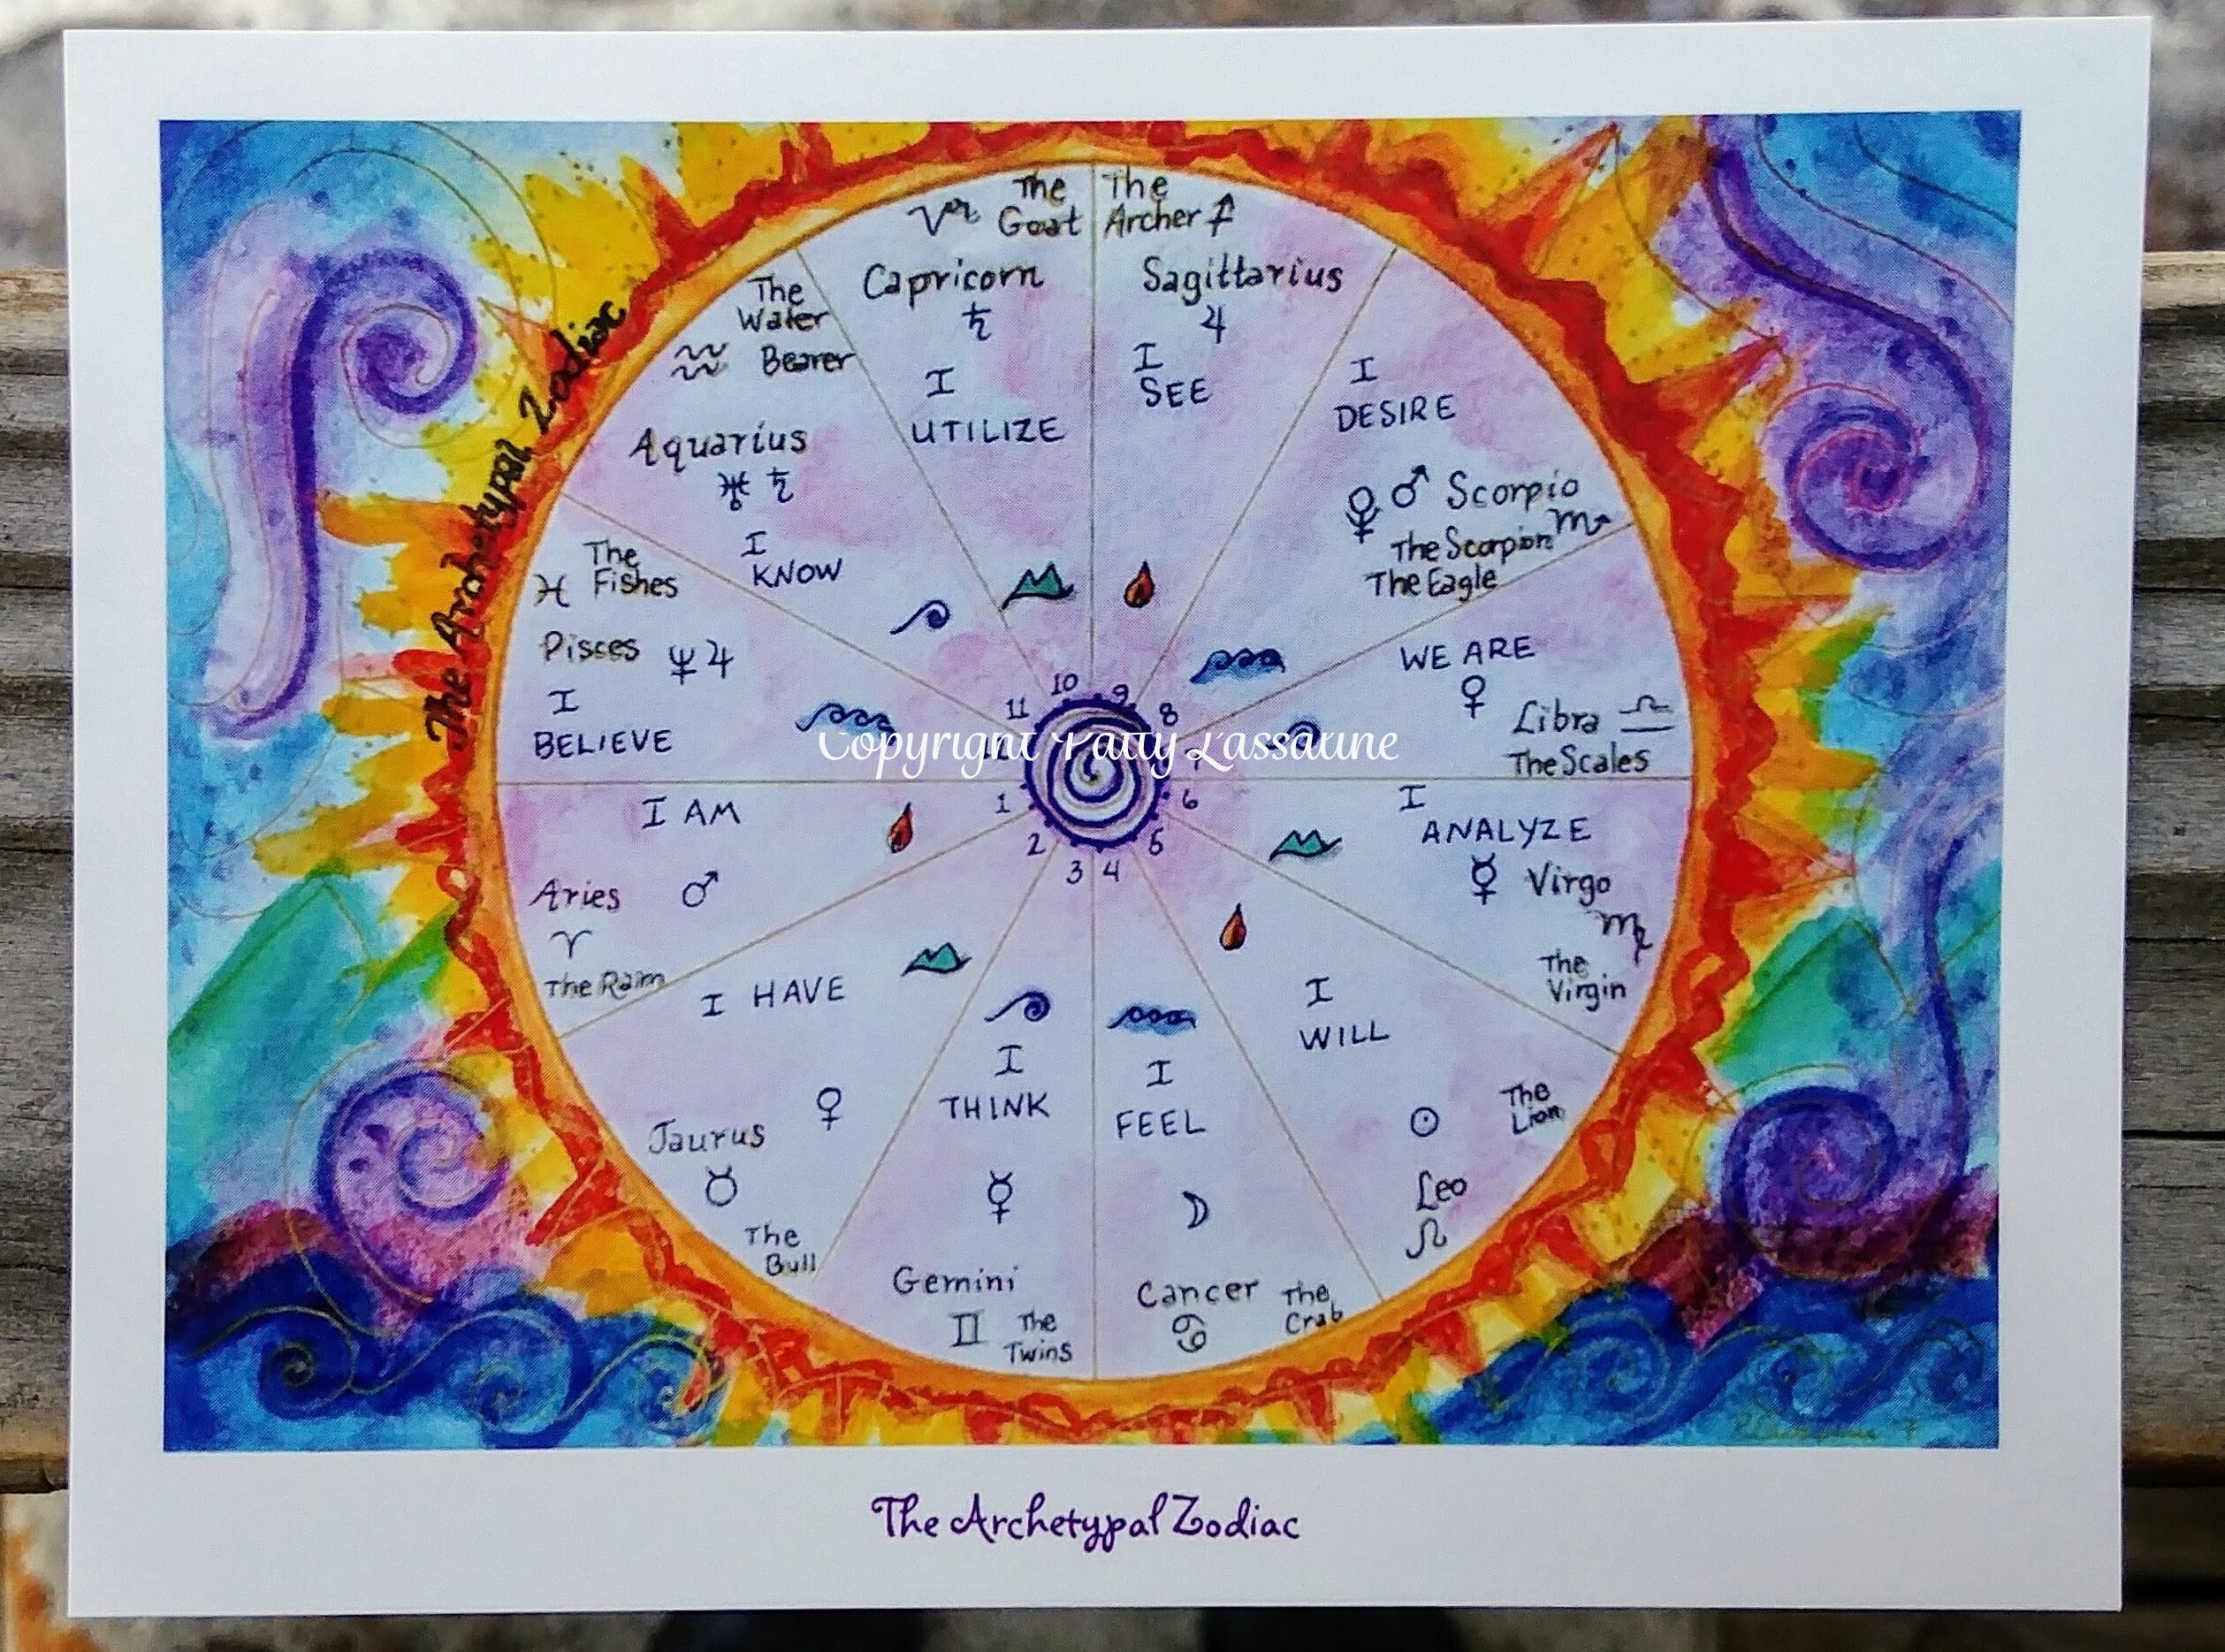 The Archetypal Zodiac
The
Goat
♑
Capricorn
♄
I
UTILIZE
The
Archer ♐
Sagittarius
♃
I
SEE
I
DESIRE
♂ Scorpio
♏
The Scorpion
The Eagle
WE ARE
♀
Libra ♎
The Scales
I
ANALYZE
☿ Virgo
♍
The
Virgin
I
WILL
The
Lion
☉
Leo
♌
I
FEEL
☽
Cancer
The
Crab
♋
I
THINK
☿
Gemini
♊
The
Twins
I HAVE
♀
Taurus
♉
The
Bull
I AM
Aries ♂
♈
The Ram
The
♓ Fishes
Pisces ♆ ♃
I
BELIEVE
The
Water
♒ Bearer
Aquarius
♅ ♄
I
KNOW
10
9
11
8
12
7
1
6
2
5
3
4
Copyright Patty Lassaline
The Archetypal Zodiac